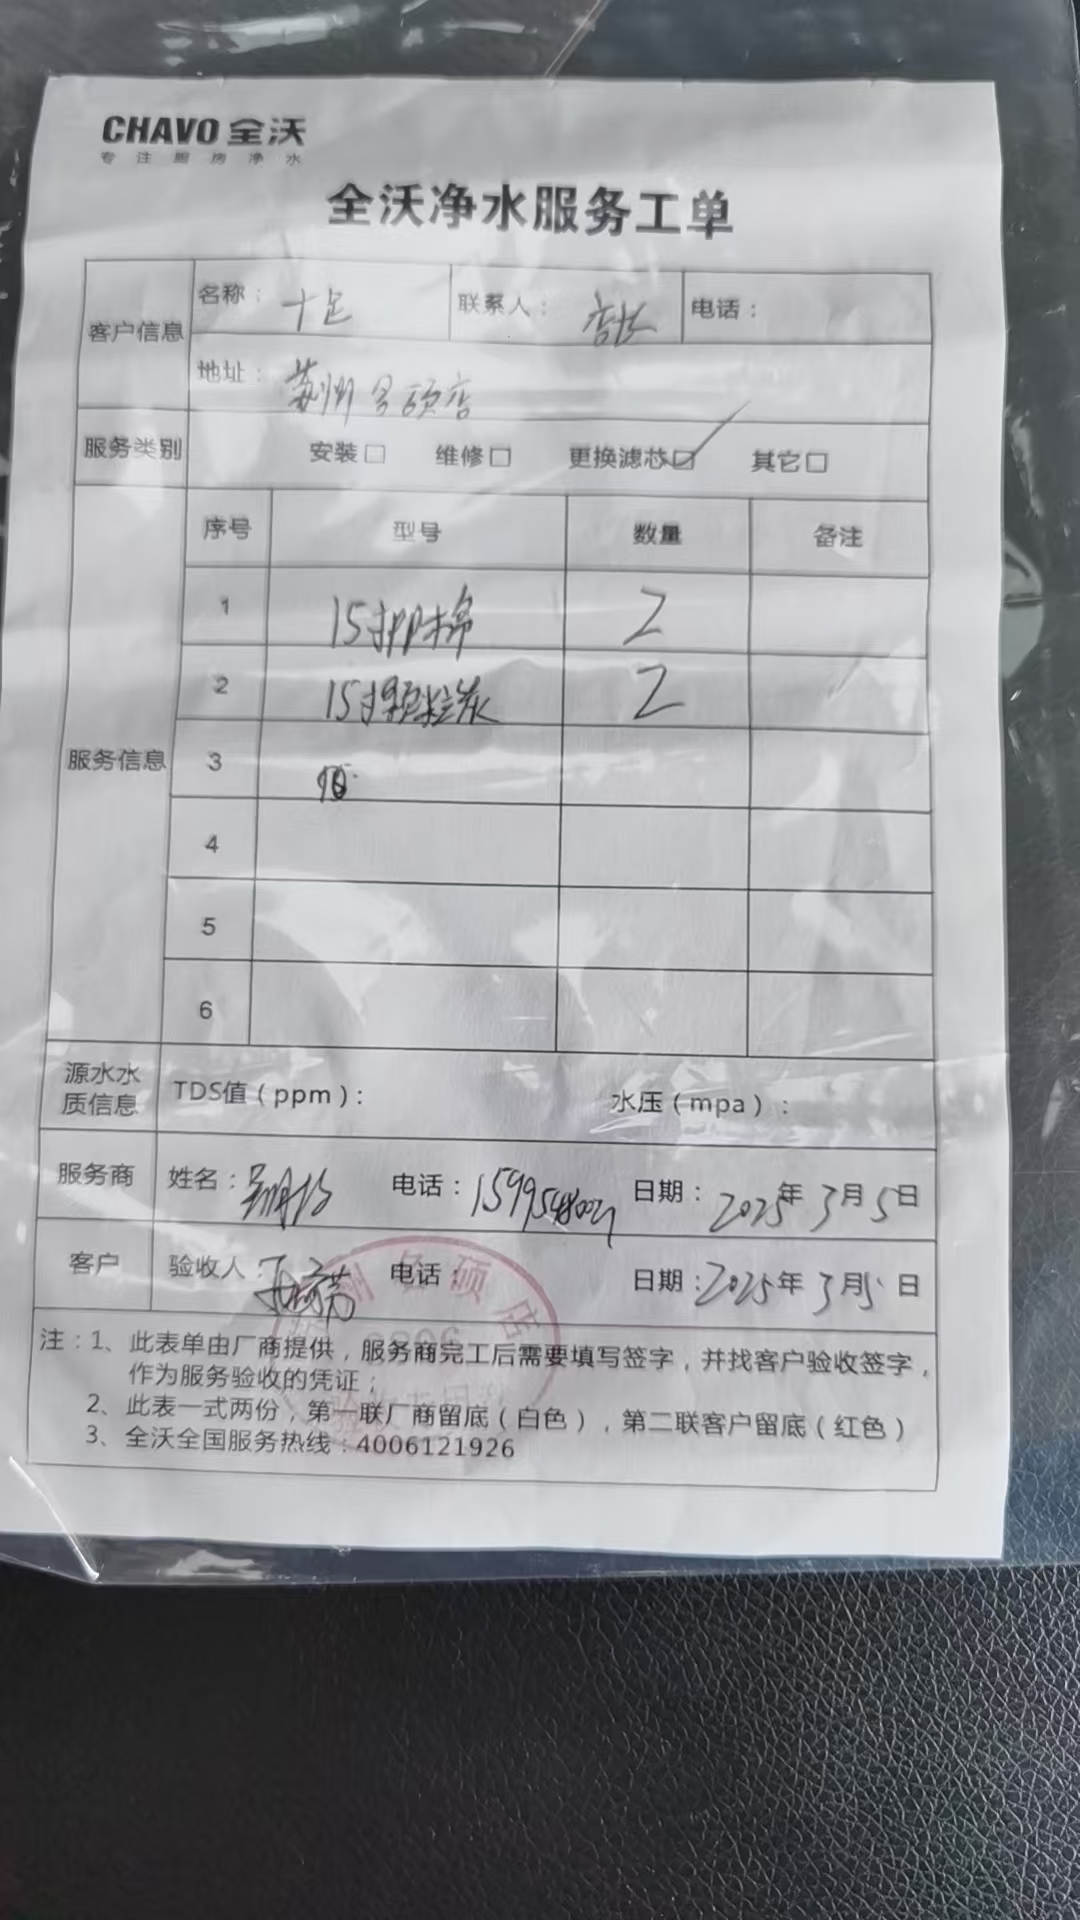 CHAVO 全沃
专注厨房净水
全沃净水服务工单
客户信息 名称： 十足 联系人： 店长 电话：
地址： 荆州多硕店
服务类别 安装□ 维修□ 更换滤芯☑ 其它□
服务信息 序号 型号 数量 备注
1 15寸PP棉 2
2 15寸颗粒炭 2
3
4
5
6
源水水质信息 TDS值（ppm）： 水压（mpa）：
服务商 姓名： 电话： 日期：2025年3月5日
客户 验收人： 电话： 日期：2025年3月5日
注：1、此表单由厂商提供，服务商完工后需要填写签字，并找客户验收签字，
作为服务验收的凭证；
2、此表一式两份，第一联厂商留底（白色），第二联客户留底（红色）
3、全沃全国服务热线：4006121926